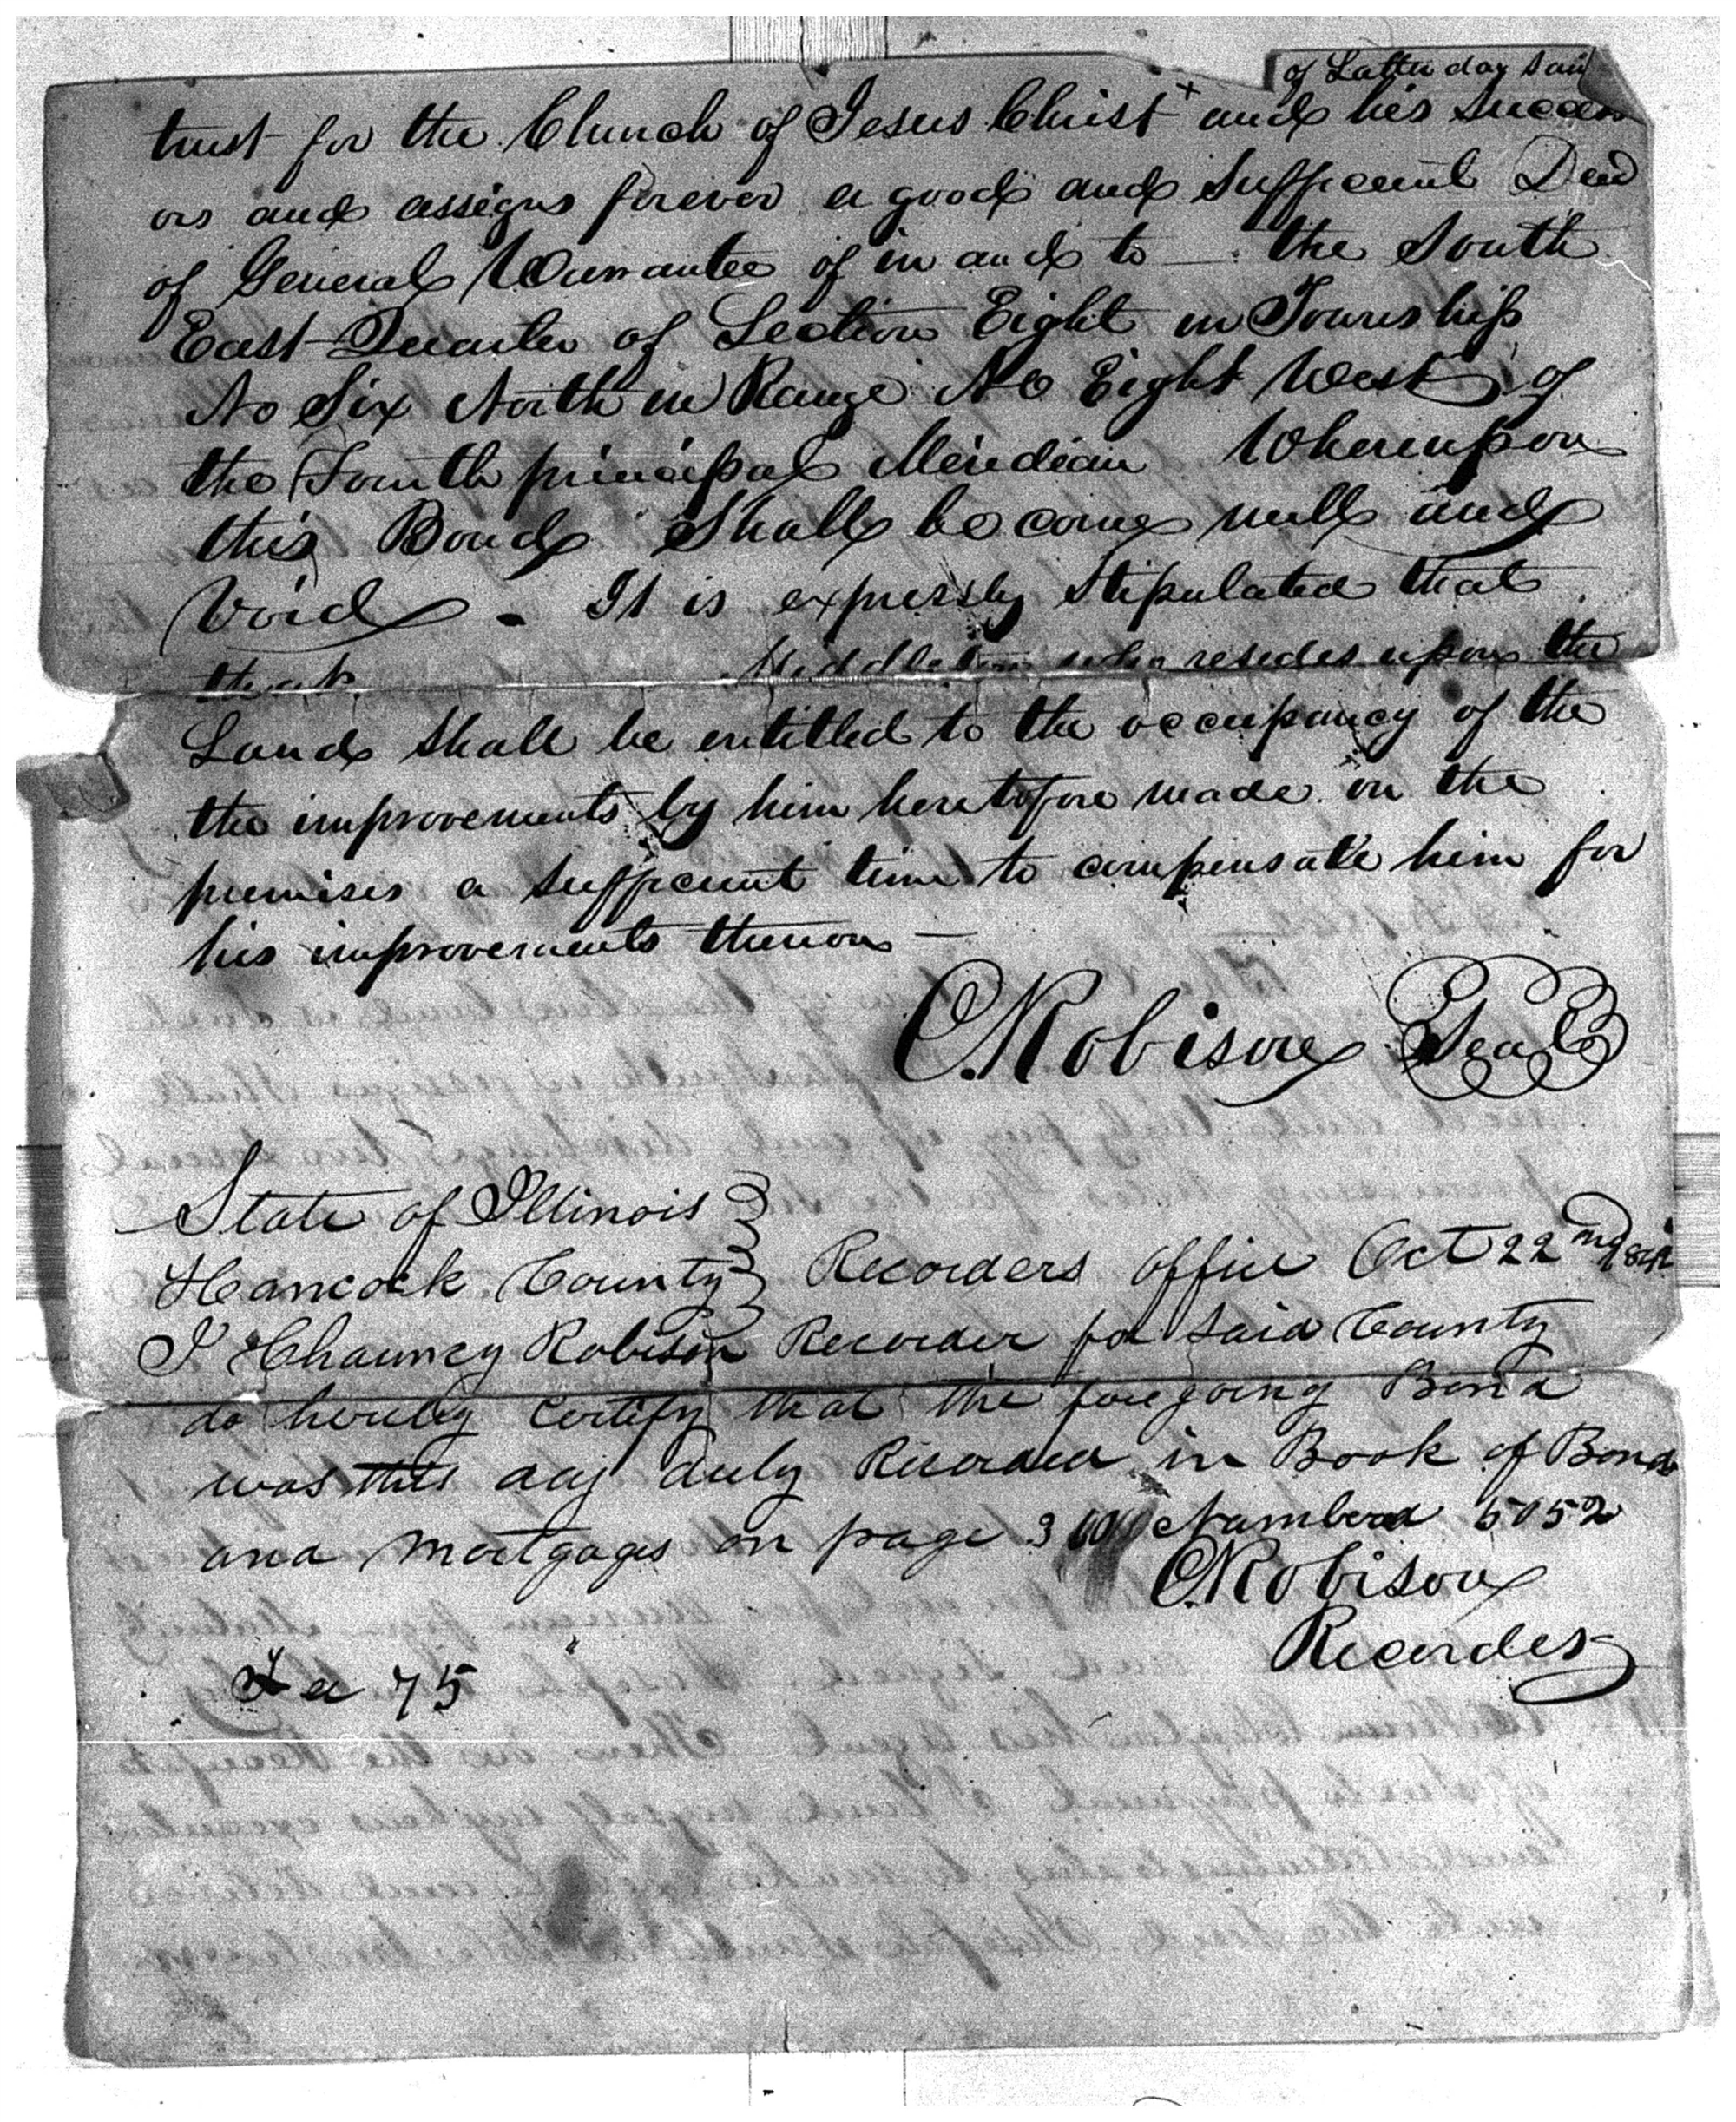 of Latter day Sain
trust for the Church of Jesus Christ + and his success
ors and assigns forever a good and sufficient Deed
of General Warrantee of in and to — the South
East Quarter of Section Eight in Township
No Six North in Range No Eight West of
the Fourth principal Meridian Whereupon
this Bond Shall become null and
Void - It is expressly Stipulated that
Middleton who resides upon the
Land shall be entitled to the occupancy of the
the improvements by him heretofore made on the
premises a sufficient time to compensate him for
his improvements thereon —
C. Robison Seal
State of Illinois
Hancock County Recorders office Oct 22nd
I Chauncy Robison Recorder for said County
do hereby certify that the foregoing Bond
was this day duly Recorded in Book of Bonds
and Mortgages on page Numbered 5052
C. Robison
Recorder
Fee 75